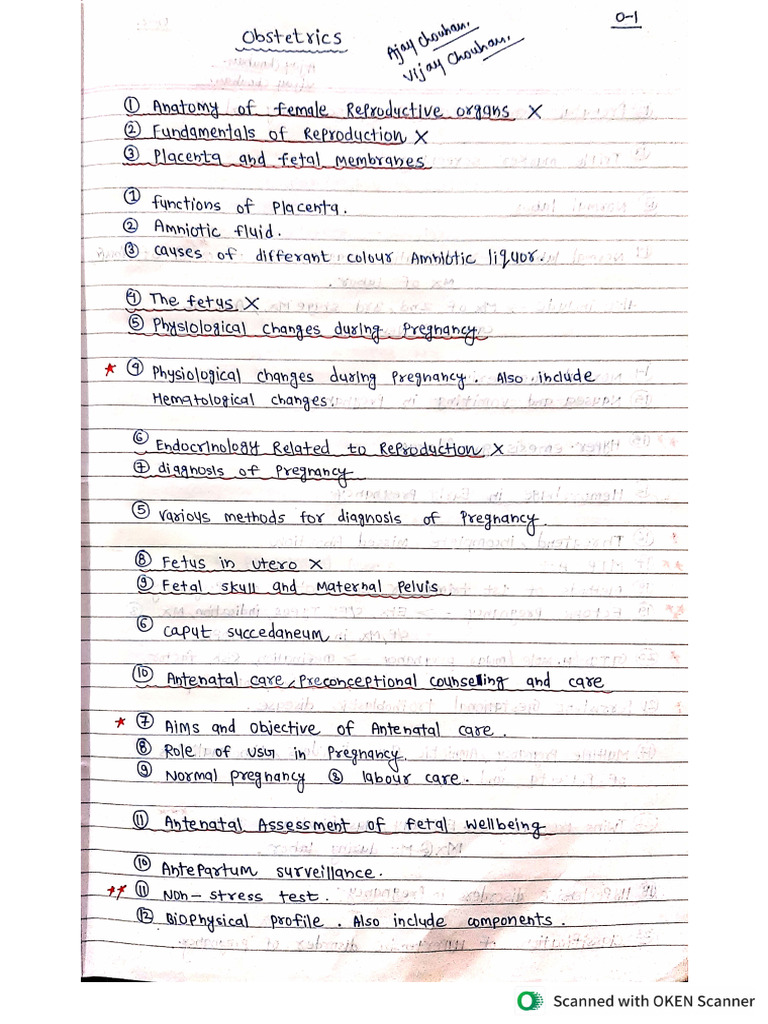 O-1
Obstetrics
Ajay Chouhan.
Vijay Chouhan.
① Anatomy of female Reproductive organs X
② Fundamentals of Reproduction X
③ Placenta and fetal Membranes
① functions of Placenta.
② Amniotic fluid.
③ causes of differant colour Amniotic liquor.
④ The fetus X
⑤ Physiological changes during Pregnancy
* ④ Physiological changes during Pregnancy. Also include
Hematological changes.
⑥ Endocrinology Related to Reproduction X
⑦ diagnosis of Pregnancy
⑤ various methods for diagnosis of Pregnancy.
⑧ Fetus in utero X
⑨ Fetal skull and Maternal Pelvis
⑥ caput succedaneum.
⑩ Antenatal care, Preconceptional counseling and care
* ⑦ Aims and objective of Antenatal care.
⑧ Role of USG in Pregnancy.
⑨ Normal pregnancy & labour care.
⑪ Antenatal Assessment of fetal wellbeing
⑩ Antepartum surveillance.
** ⑪ Non-stress test.
⑫ Biophysical profile. Also include components.
Scanned with OKEN Scanner